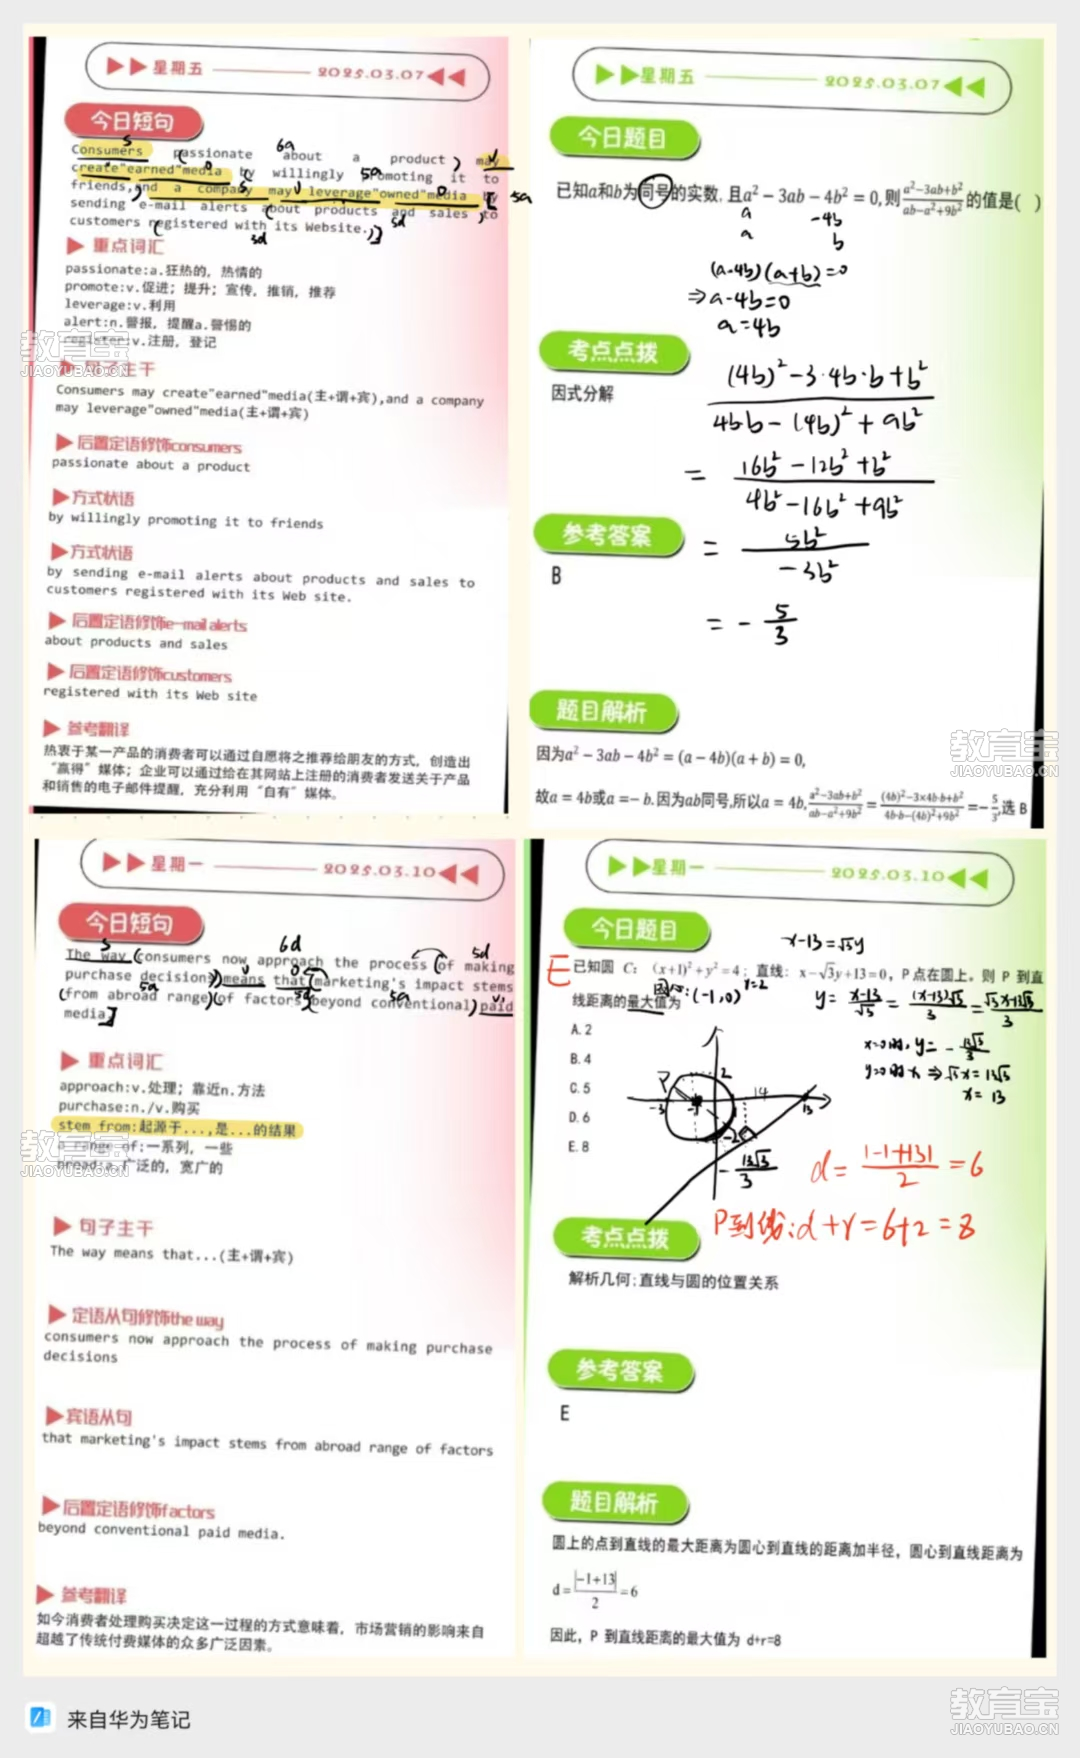 星期五
2025.03.07
今日短句
Consumers passionate about a product may
create"earned"media by willingly promoting it to
friends,and a company may leverage"owned"media by
sending e-mail alerts about products and sales to
customers registered with its Website.
重点词汇
passionate:a.狂热的, 热情的
promote:v.促进; 提升; 宣传, 推销, 推荐
leverage:v.利用
alert:n.警报, 提醒a.警惕的
register:v.注册, 登记
句子主干
Consumers may create"earned"media(主+谓+宾),and a company
may leverage"owned"media(主+谓+宾)
后置定语修饰consumers
passionate about a product
方式状语
by willingly promoting it to friends
方式状语
by sending e-mail alerts about products and sales to
customers registered with its Web site.
后置定语修饰e-mail alerts
about products and sales
后置定语修饰customers
registered with its Web site
参考翻译
热衷于某一产品的消费者可以通过自愿将之推荐给朋友的方式, 创造出
“赢得”媒体; 企业可以通过给在其网站上注册的消费者发送关于产品
和销售的电子邮件提醒, 充分利用“自有”媒体。
星期五
2025.03.07
今日题目
已知a和b为同号的实数, 且a²－3ab－4b²＝0,则(a²－3ab+b²)/(ab－a²+9b²)的值是( )
a －4b
a b
(a-4b)(a+b)=0
⇒a-4b=0
a=4b
考点点拨
因式分解
((4b)²-3·4b·b+b²)/(4b·b-(4b)²+9b²)
= (16b²-12b²+b²)/(4b²-16b²+9b²)
= 5b²/-3b²
= -5/3
参考答案
B
题目解析
因为a²－3ab－4b²＝(a－4b)(a＋b)＝0,
故a＝4b或a＝－b.因为ab同号,所以a＝4b,(a²－3ab+b²)/(ab－a²+9b²)＝((4b)²－3×4b·b+b²)/(4b·b－(4b)²+9b²)＝－5/3,选 B
星期一
2025.03.10
今日短句
The way consumers now approach the process of making
purchase decisions means that marketing's impact stems
from abroad range of factors beyond conventional paid
media.
重点词汇
approach:v.处理; 靠近n.方法
purchase:n./v.购买
stem from:起源于...,是...的结果
a range of:一系列, 一些
broad:a.广泛的, 宽广的
句子主干
The way means that...(主+谓+宾)
定语从句修饰the way
consumers now approach the process of making purchase
decisions
宾语从句
that marketing's impact stems from abroad range of factors
后置定语修饰factors
beyond conventional paid media.
参考翻译
如今消费者处理购买决定这一过程的方式意味着, 市场营销的影响来自
超越了传统付费媒体的众多广泛因素。
星期一
2025.03.10
今日题目
x-13=√3y
E
已知圆 C: (x+1)²+y²=4; 直线: x-√3y+13=0, P点在圆上, 则 P 到直
线距离的最大值为
圆心:(-1,0) r=2
y=(x-13)/√3=(x-13)√3/3=(√3x-13√3)/3
x=0时,y=-13√3/3
y=0时 x⇒√3x=13√3
x=13
A.2
B.4
C.5
D.6
E.8
P
2
-3
-1
14
13
-2
-13√3/3
d=|-1+13|/2=6
P到线:d+r=6+2=8
考点点拨
解析几何;直线与圆的位置关系
参考答案
E
题目解析
圆上的点到直线的最大距离为圆心到直线的距离加半径, 圆心到直线距离为
d=|-1+13|/2=6
因此, P 到直线距离的最大值为 d+r=8
来自华为笔记
教育宝
JIAOYUBAO.CN
教育宝
JIAOYUBAO.CN
教育宝
JIAOYUBAO.CN
教育宝
JIAOYUBAO.CN